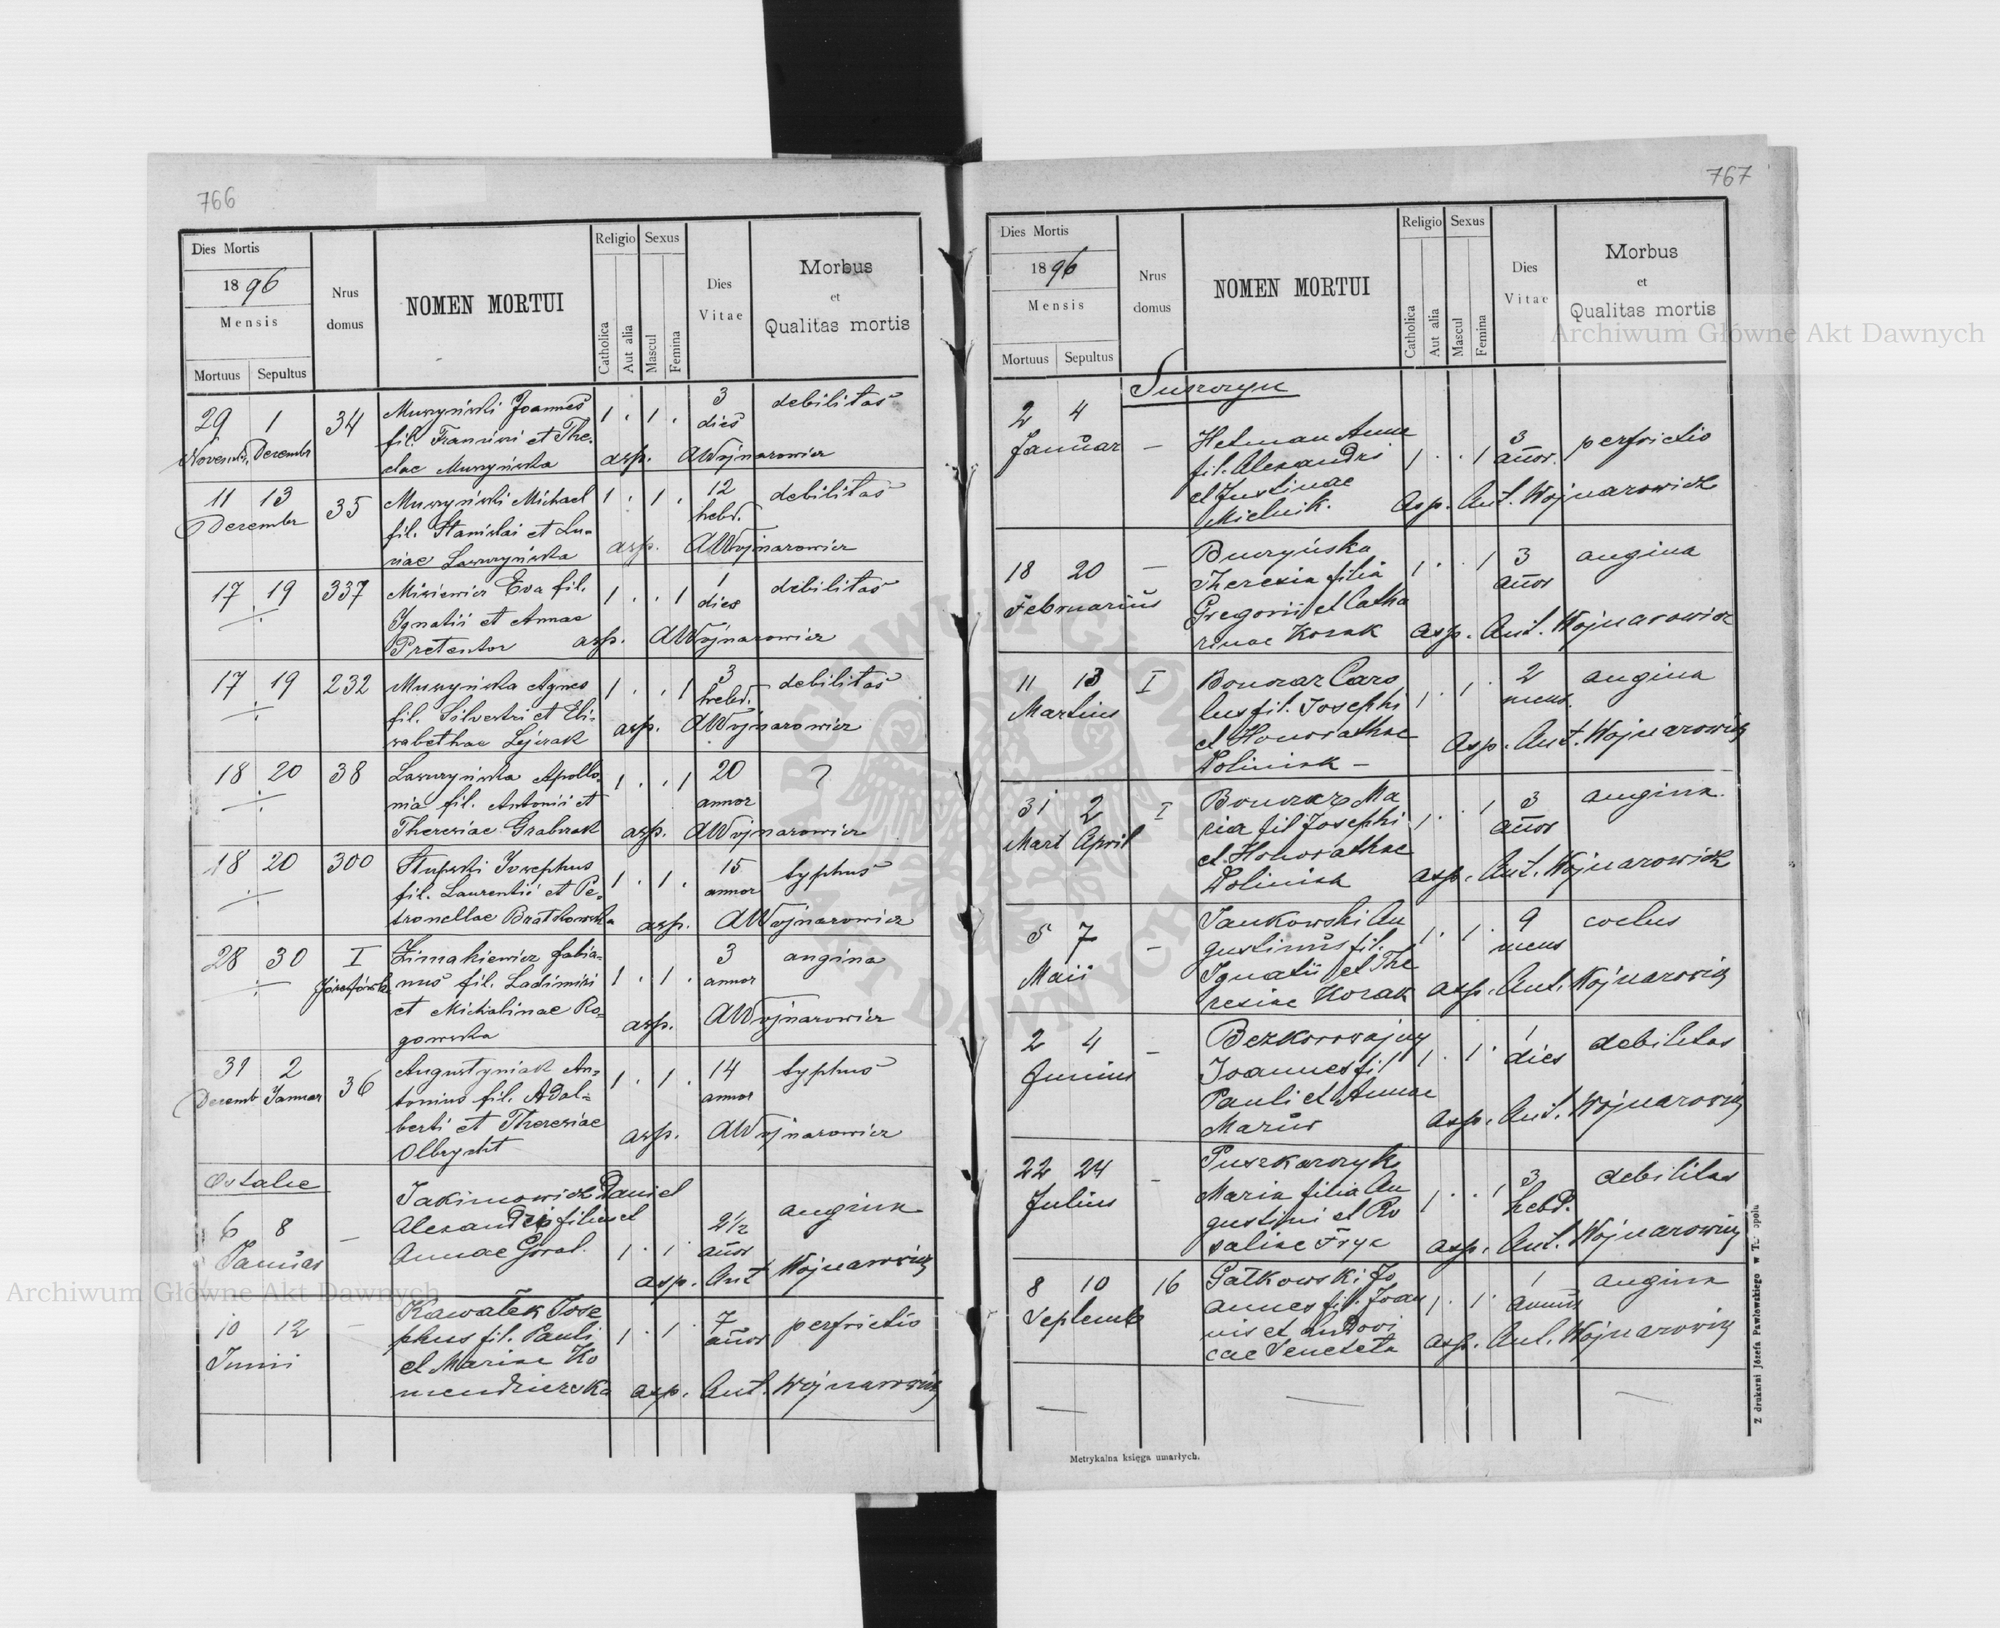 766
Dies Mortis
1896
Mensis
Mortuus Sepultus
Nrus domus
NOMEN MORTUI
Religio Sexus
Catholica Aut alia Mascul Femina
Dies Vitae
Morbus
et
Qualitas mortis
29 1 34 Muszyński Joannes 1 . 1 . 3 debilitas
Novemb. Decembr fil. Francisci et The- dies
clae Muszyńska asp. AWojnarowicz
11 13 35 Muszyński Michael 1 . 1 . 12 debilitas
Decembr fil. Stanislai et Lu- hebd.
ciae Ławszyńska asp. AWojnarowicz
17 19 337 Misiewicz Eva fil. 1 . . 1 1 debilitas
Ignatii et Annae dies
Pretentor asp. AWojnarowicz
17 19 232 Muszyńska Agnes 1 . . 1 3 debilitas
fil. Silvestri et Eli- hebd.
sabethae Lejczak asp. AWojnarowicz
18 20 38 Apollo- 1 . . 1 20 ?
nia fil. Antonii et annor
Theresiae Grabczak asp. AWojnarowicz
18 20 300 Słupski Josephus 1 . 1 . 15 typhus
fil. Laurentii et Pe- annor
tronellae Bratkowska asp. AWojnarowicz
28 30 I Zimakiewicz Fabia- 3 angina
Józefówka nus fil. Ladimiri 1 . 1 . annor
et Michalinae Ro- asp. AWojnarowicz
gowska
31 2 36 Augustyniak An- 1 . 1 . 14 typhus
Decemb Januar tonius fil. Adal- annor
berti et Theresiae asp. AWojnarowicz
Olbrycht
Ostalce
Jakimowicz Daniel angina
6 8 — Alexandri filius et 2½
Januar Annae Goral. 1 . 1 . años
asp. Ant Wojnarowicz
10 12 — Kawałek Jose 7 perfrictio
Junii phus fil. Pauli 1 . 1 años
et Mariae Ko
mendzierska asp. Ant. Wojnarowicz
767
Dies Mortis
1896
Mensis
Mortuus Sepultus
Nrus domus
NOMEN MORTUI
Religio Sexus
Catholica Aut alia Mascul Femina
Dies Vitae
Morbus
et
Qualitas mortis
Suszczyn
2 4 Hetman Anna 3 perfrictio
Januar — fil. Alexandri 1 . . 1 años.
et Justinae asp. Ant. Wojnarowicz
Mielnik.
18 20 — Buczyńska 3 angina
Februarius Theresia filia 1 . . 1 años
Gregorii et Catha
rinae Kozak asp. Ant. Wojnarowicz
11 13 I Bonczar Caro 2 angina
Martius lus fil. Josephi 1 . 1 . mens.
et Honorathae asp. Ant. Wojnarowicz
Doliniak —
31 2 I Bonczar Ma 3 angina
Mart April ria fil Josephi 1 . . 1 años
et Honorathae asp. Ant. Wojnarowicz
Doliniak
5 7 — Jankowski Au 9 coelus
Maii gustinus fil. 1 . 1 . mens
Ignatii et The
resiae Kozak asp. Ant. Wojnarowicz
2 4 — Bezkorowajny 1 debilitas
Junius Joannes fil 1 . 1 . dies
Pauli et Annae
Mazur asp. Ant. Wojnarowicz
22 24 — Puszkarczyk 3 debilitas
Julius Maria filia Au 1 . . 1 hebd.
gustini et Ro
saliae Fryc asp. Ant. Wojnarowicz
8 10 16 Gałkowski Jo 1 angina
Septemb annes fil. Joan 1 . 1 . annus
nis et Ludovi
cae asp. Ant. Wojnarowicz
Metrykalna księga umarłych.
Z drukarni Józefa Pawłowskiego w T
Archiwum Główne Akt Dawnych
Archiwum Główne Akt Dawnych
ARCHIWUM GŁÓWNE AKT DAWNYCH